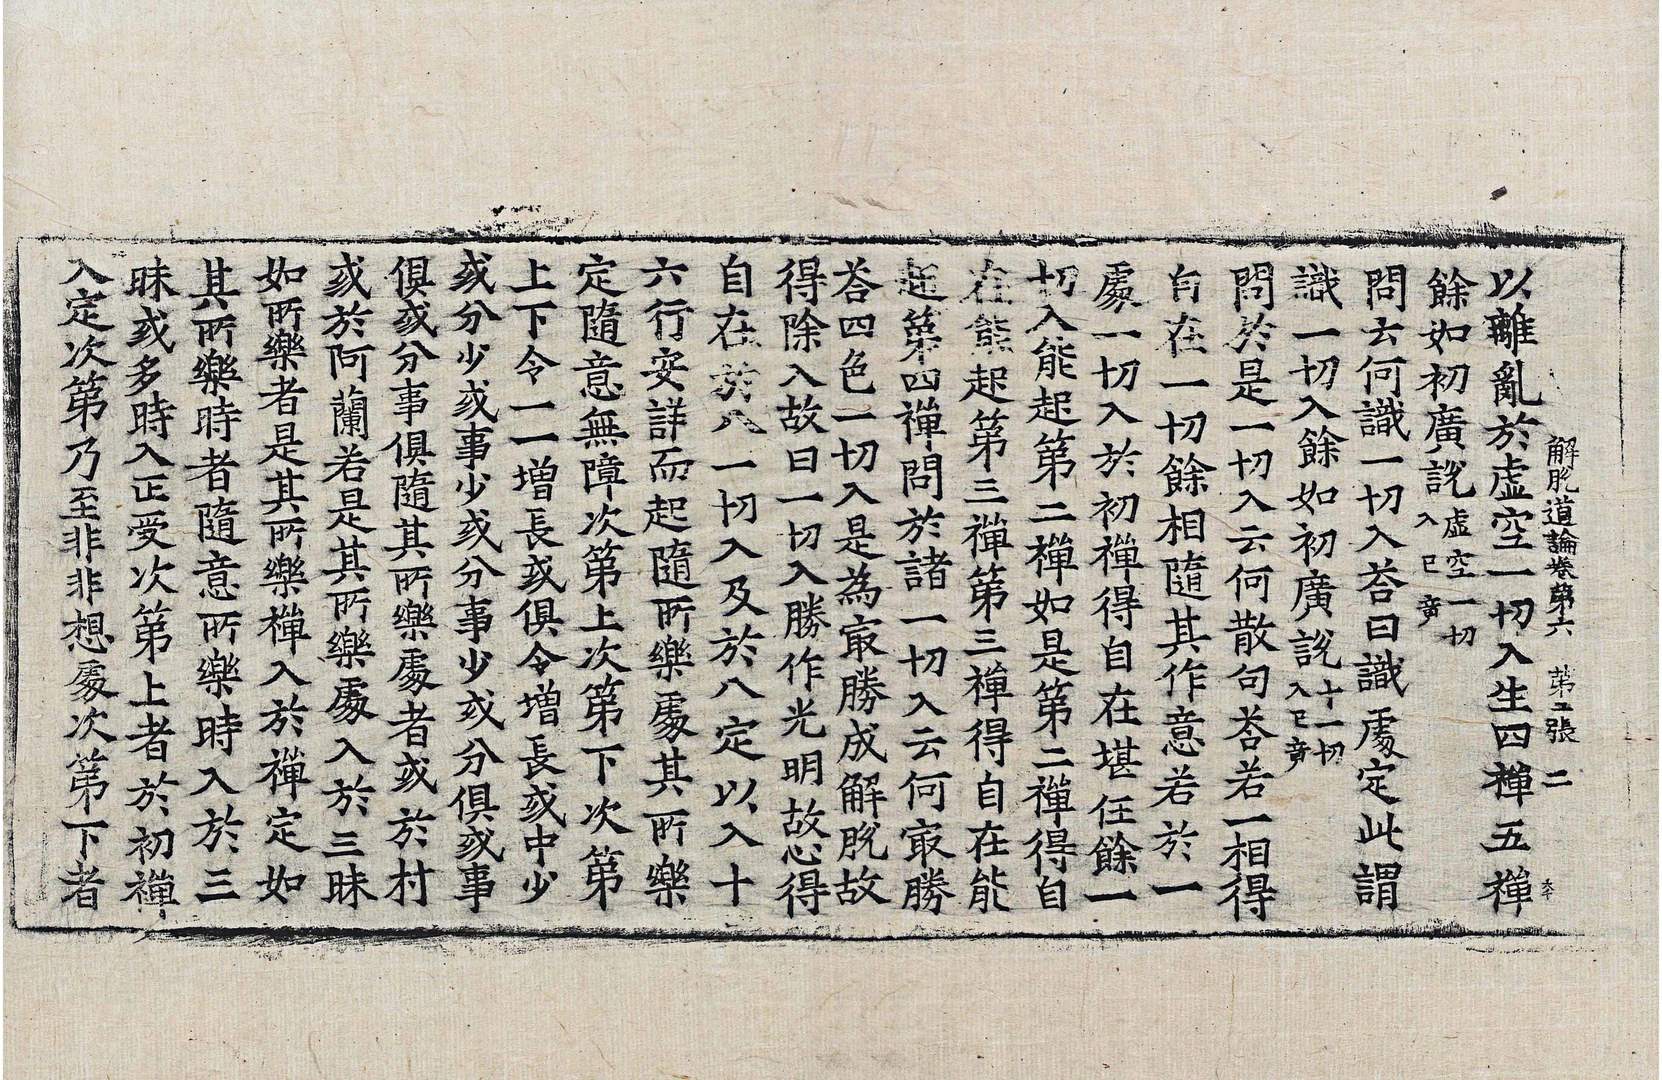 解脫道論卷第六 第二張 二
以離亂於虛空一切入生四禪五禪
餘如初廣說虛空一切入已竟
問云何識一切入荅曰識處定此謂
識一切入餘如初廣說十一切入已竟
問於是一切入云何散句荅若一相得
自在一切餘相隨其作意若於一
處一切入於初禪得自在堪任餘一
切入能起第二禪如是第二禪得自
在能起第三禪第三禪得自在能
起第四禪問於諸一切入云何㝡勝
荅四色一切入是為㝡勝成解脫故
得除入故曰一切入勝作光明故心得
自在於八一切入及於八定以入十
六行安詳而起隨所樂處其所樂
定隨意無障次第上次第下次第
上下令一一增長或俱令增長或中少
或分少或事少或分事少或分俱或事
俱或分事俱隨其所樂處者或於村
或於阿蘭若是其所樂處入於三昧
如所樂者是其所樂禪入於禪定如
其所樂時者隨意所樂時入於三
昧或多時入正受次第上者於初禪
入定次第乃至非非想處次第下者